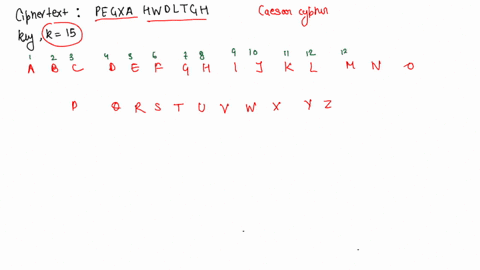 Ciphertext : PEGXA HWDLTGH Caesar cypher
key, k = 15
1 2 3 4 5 6 7 8 9 10 11 12 13
A B C D E F G H I J K L M N O
P Q R S T U V W X Y Z